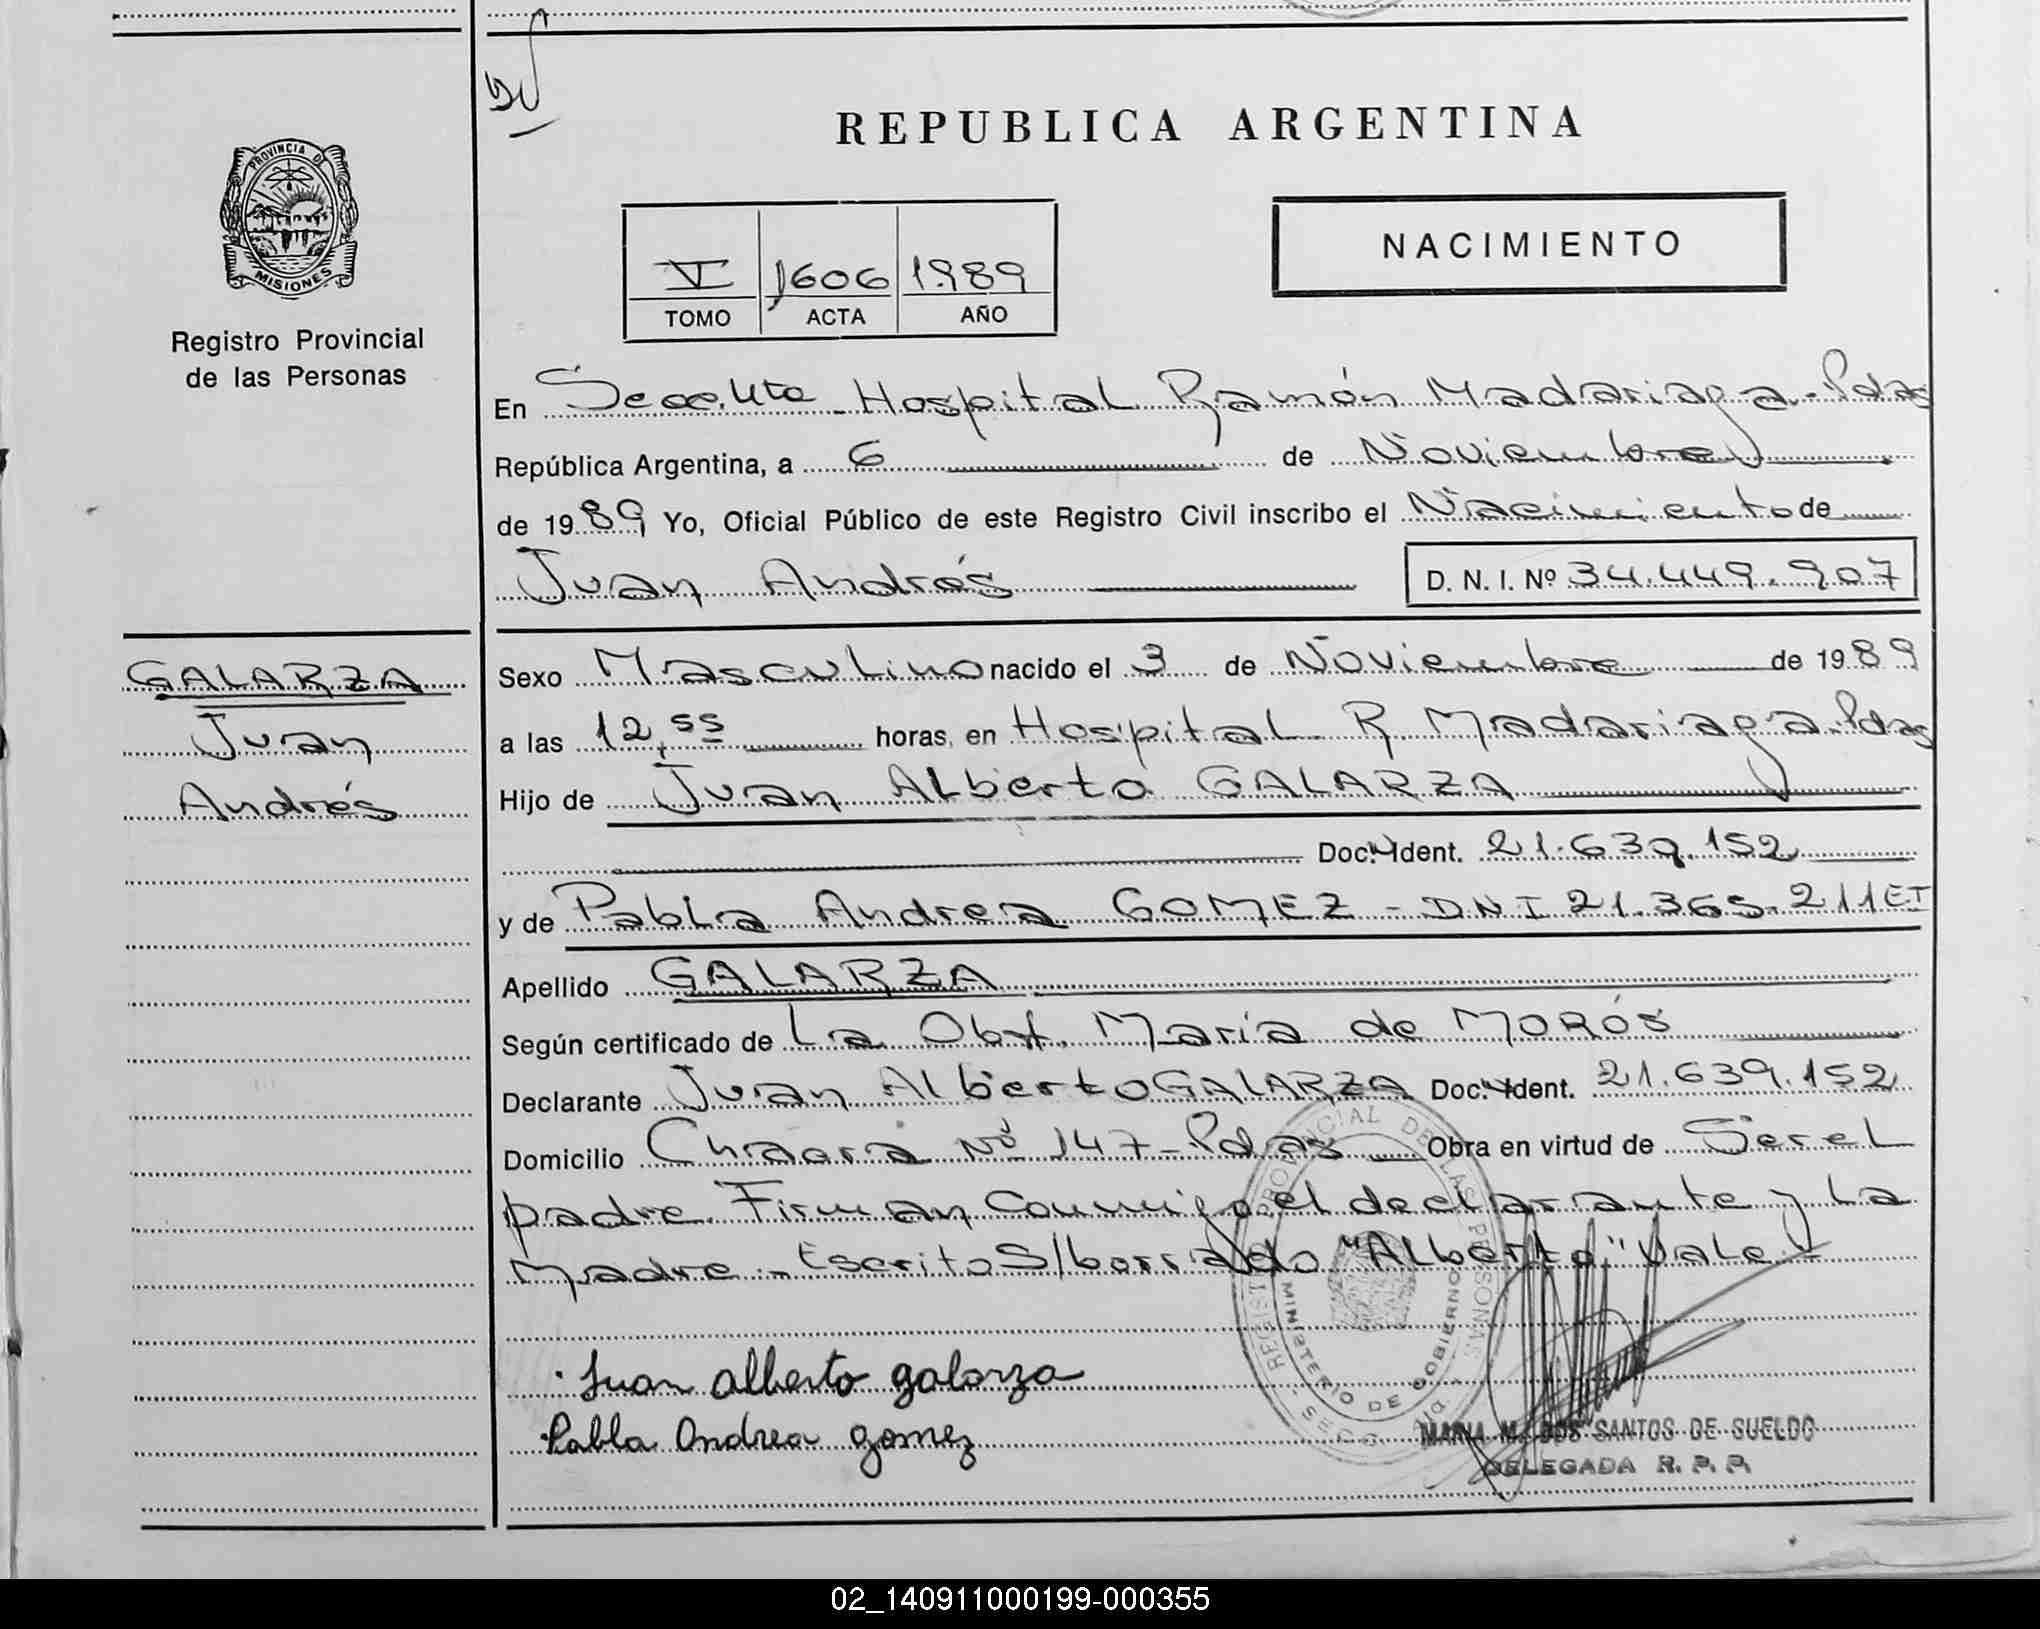 REPUBLICA ARGENTINA
PROVINCIA DE
MISIONES
Registro Provincial
de las Personas
NACIMIENTO
VI 1606 1989
TOMO ACTA AÑO
En Secc. Hospital Ramón Madariaga - Pdas
República Argentina, a 6 de Noviembre
de 1989 Yo, Oficial Público de este Registro Civil inscribo el Nacimiento de
Juan Andrés D. N. I. Nº 34.449.907
GALARZA
Juan
Andrés
Sexo Masculino nacido el 3 de Noviembre de 1989
a las 12,55 horas, en Hospital R. Madariaga. Pdas
Hijo de Juan Alberto GALARZA
Doc. Ident. 21.639.152
y de Pabla Andrea GOMEZ - DNI 21.365.211 ET
Apellido GALARZA
Según certificado de La Obst. María de MOROS
Declarante Juan Alberto GALARZA Doc. Ident. 21.639.152
Domicilio Chacra Nº 147 - Pdas Obra en virtud de Ser el
padre. Firman Conmigo el declarante y La
Madre - Escrito S/borrado "Alberto" Vale
Juan alberto galarza
Pabla Andrea gomez
REGISTRO PROVINCIAL DE LAS PERSONAS
MINISTERIO DE GOBIERNO
MARIA M. DOS SANTOS DE SUELDO
DELEGADA R. P. P.
02_140911000199-000355